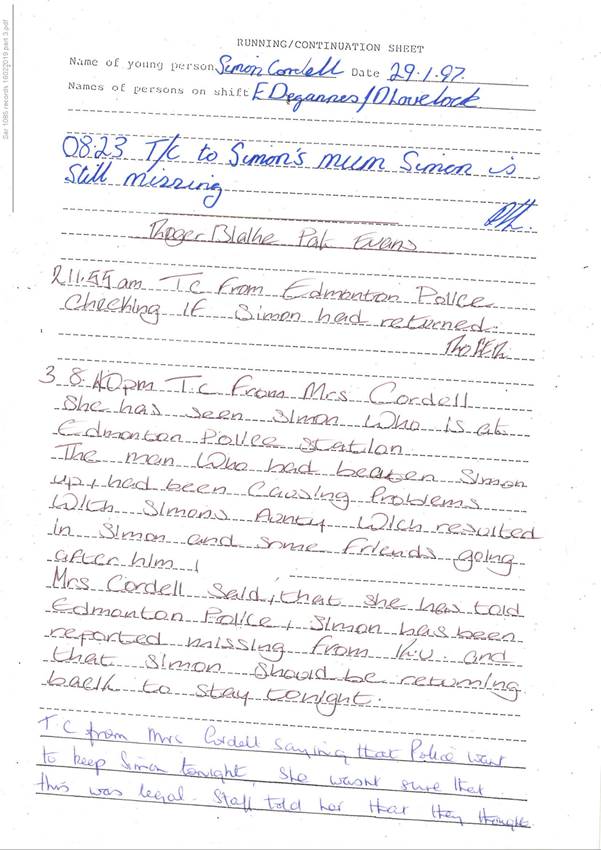 Sar 1085 records 16022019 part 3.pdf
RUNNING/CONTINUATION SHEET
Name of young person Simon Cordell Date 29.1.97.
Names of persons on shift E Degannes/D Lovelock
08:23 T/C to Simon's mum Simon is
still missing
Evans
2 11.55am T.C From Edmonton Police
checking if Simon had returned.
3 8.40pm T.C From Mrs Cordell
She has seen Simon who is at
Edmonton Police Station
The man who had beaten Simon
up, had been causing Problems
with Simons Aunty which resulted
in Simon and some friends going
after him!
Mrs Cordell said, that she has told
Edmonton Police, Simon has been
reported missing from and
that Simon should be returning
back to stay tonight.
T.C from Mrs Cordell saying that Police want
to keep Simon tonight, she wasnt sure that
this was legal. Staff told her that they thought